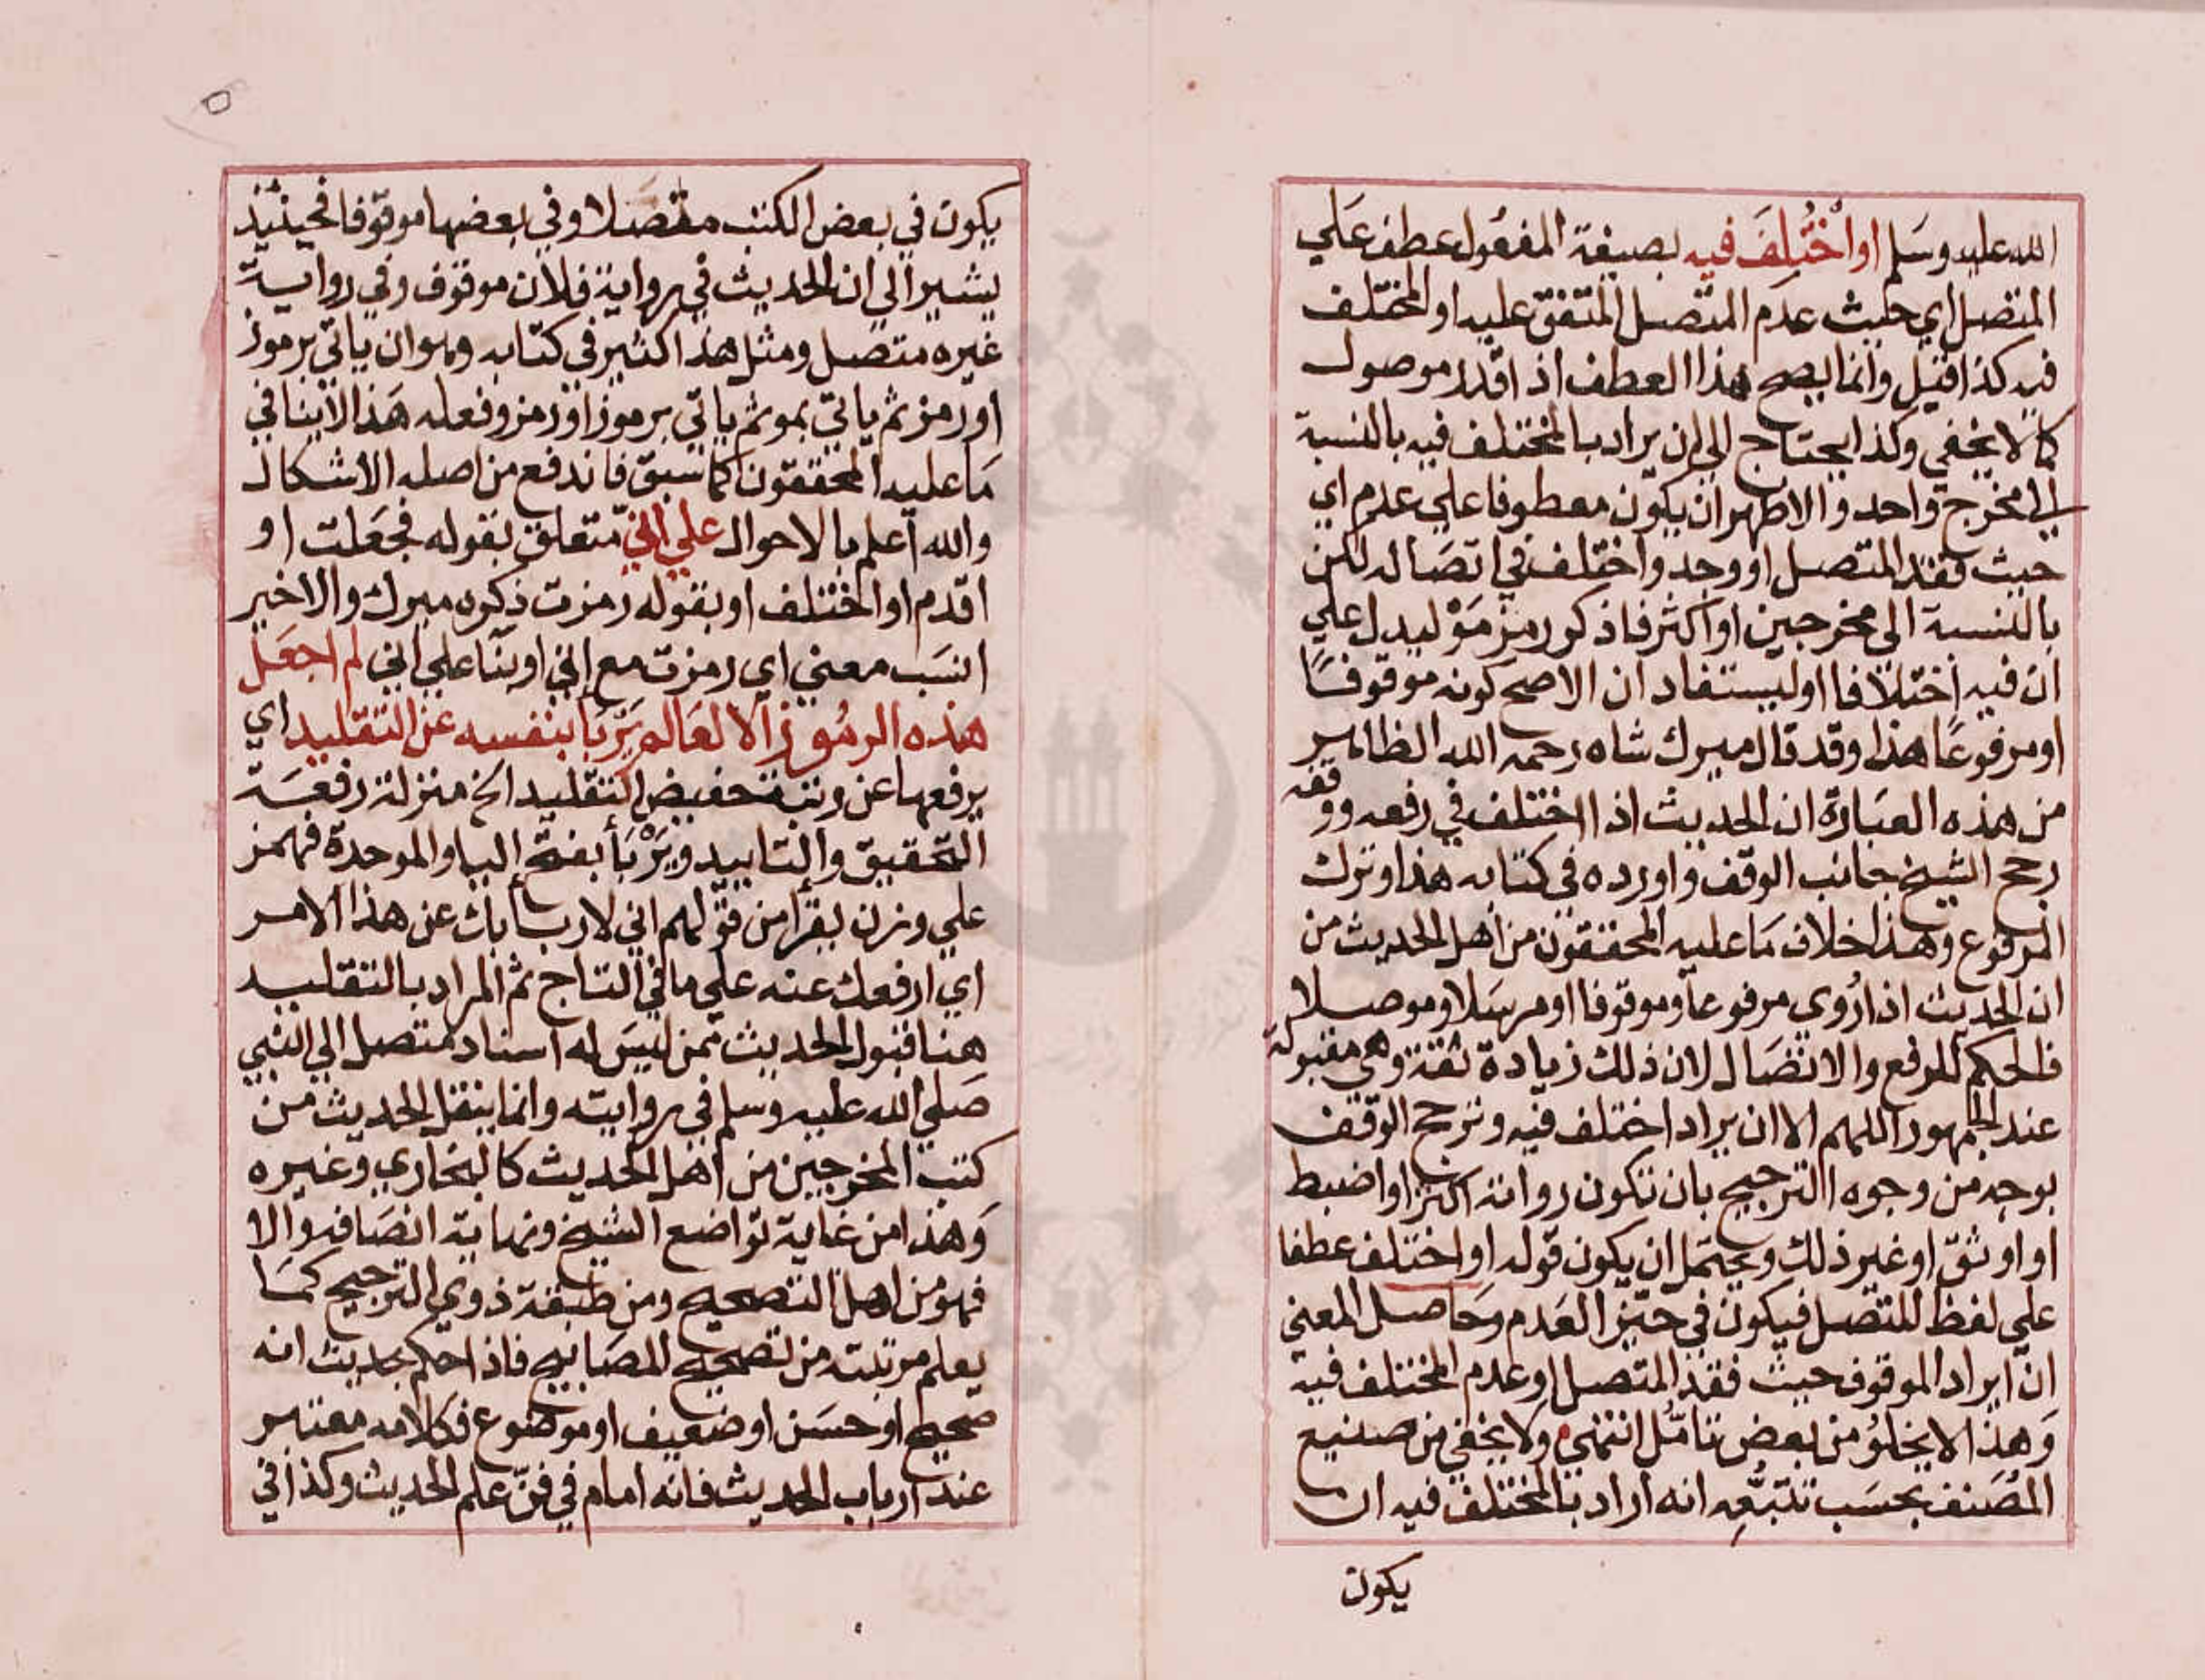 الله عليه وسلم او اخْتُلِفَ فيه بصيغة المفعول عطف علي
المتصل اي حيث عدم المتصل المتفق عليه او المختلف
فيه كذا قيل وانما يصح هذا العطف اذا قدر موصول
كما لا يخفي وكذا يحتاج الي ان يراد بالمختلف فيه بالنسبة
الي مخرج واحد والاظهر ان يكون معطوفا علي عدم اي
حيث فقد المتصل او وجد واختلف في اتصاله لكن
بالنسبة الي مخرجين او اكثر فاذكر رمز مَوْ ليدل علي
ان فيه اختلافا او ليستفاد ان الاصح كونه موقوفًا
او مرفوعا هذا وقد قال ميرك شاه رحمه الله الظاهر
من هذه العبارة ان الحديث اذا اختلف في رفعه ووقفه
رجح الشيخ جانب الوقف واورده في كتابه هذا وترك
المرفوع وهذا خلاف ما عليه المحققون من اهل الحديث من
ان الحديث اذا رُوي مرفوعا وموقوفا او مرسلا وموصلا
فالحكم للرفع والاتصال لان ذلك زيادة ثقة وهي مقبولة
عند الجمهور اللهم الا ان يراد اختلف فيه وترجح الوقف
بوجه من وجوه الترجيح بان تكون رواته اكثر او اضبط
او اوثق او غير ذلك ويحتمل ان يكون قوله او اختلف عطفا
علي لفظ المتصل فيكون في حيّز العدم وحاصل المعني
ان ايراد الموقوف حيث فقد المتصل او عدم المختلف فيه
وهذا لا يخلو من بعض تامّل انتهي ولا يخفي من صنيع
المصنف بحسب تتبُّعِه انه اراد بالمختلف فيه ان
يكون
٥
يكون في بعض الكتب متصلا وفي بعضها موقوفا فحينئذ
يشير الي ان الحديث في رواية فلان موقوف وفي رواية
غيره متصل ومثل هذا كثير في كتابه وهو ان ياتي برموز
او رمز ثم ياتي بمو ثم ياتي برموز او رمز وفعله هذا لا ينافي
ما عليه المحققون كما سبق فاندفع من اصله الاشكال
والله اعلم بالاحوال علي اني متعلق بقوله فجعلت او
اقدم او المختلف او بقوله رمزت ذكره ميرك والاخير
انسب معني اي رمزت مع اني او بنا علي اني لم اجعل
هذه الرموز الا لعالم يَرْبَا بنفسه عن التقليد اي
يرفعها عن رتبة حضيض التقليد الخ منزلة رفعة
التحقيق والتاييد ويَرْبَأ بفتح الياء والموحدة فهمز
علي وزن يقرأ من قولهم اني لا ربأ بك عن هذا الامر
اي ارفعك عنه علي ما في التاج ثم المراد بالتقليد
هنا قبول الحديث ممن ليس له اسناد متصل الي النبي
صلي الله عليه وسلم في روايته وانما ينقل الحديث من
كتب المخرجين من اهل الحديث كالبخاري وغيره
وهذا من غاية تواضع الشيخ ونهاية انصافه والا
فهو من اهل التصحيح ومن طبقة ذوي الترجيح كما
يعلم مرتبته من تصحيح المصابيح فاذا حكم بحديث انه
صحيح او حسن او ضعيف او موضوع فكلامه معتبر
عند ارباب الحديث فانه امام في فنّ علم الحديث وكذا في